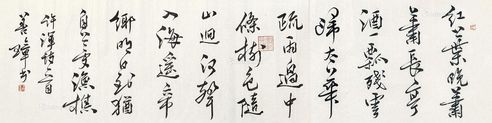 红葉晚蕭
蕭長亭
酒一瓢殘雲
歸太華
疏雨過中
條樹色隨
山迥河聲
入海遥帝
鄉明日到猶
自夢漁樵
許渾詩一首
善璋书